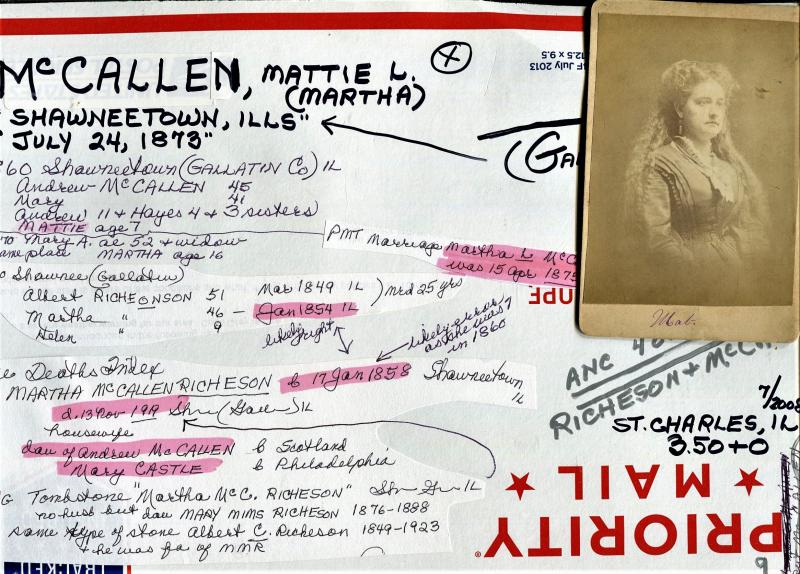 McCALLEN, MATTIE L.
(MARTHA)
SHAWNEETOWN, ILLS"
JULY 24, 1873"
60 Shawneetown (GALLATIN Co) IL
Andrew McCALLEN 45
Mary 41
Andrew 11 & Hayes 4 & 3 sisters)
MATTIE age 7
Mary A. ae 52 & widow
same place MARTHA age 16
PMT Marriage Martha L McC
was 15 Apr 1875
Shawnee (Gallatin)
Albert RICHEONSON 51 Mar 1849 IL ) mrd 25 yrs
Martha " 46 - Jan 1854 IL
Helen " 9
likely right
likely error
as she was 7
in 1860
Deaths Index
MARTHA McCALLEN RICHESON b 17 Jan 1858 Shawneetown
IL
d. 13 Nov IL
housewife
dau of Andrew McCALLEN b Scotland
Mary CASTLE b Philadelphia
G Tombstone "Martha McC. RICHESON" IL
no husb but dau MARY MIMS RICHESON 1876-1888
same type of stone Albert C. Richeson 1849-1923
& he was fa of MMR
(GA
Mat.
ANC
RICHESON & McC
7/2008
ST. CHARLES, IL
3.50+0
PRIORITY
MAIL
July 2013
12.5 x 9.5
TRACKED